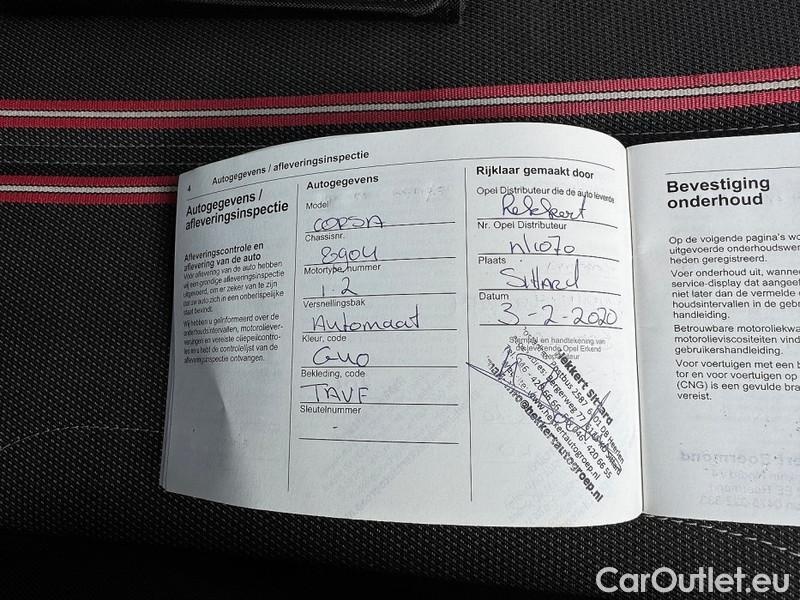 4 Autogegevens / afleveringsinspectie
Autogegevens /
afleveringsinspectie
Afleveringscontrole en
aflevering van de auto
Vóór aflevering van de auto hebben
wij een grondige afleveringsinspectie
uitgevoerd, om er zeker van te zijn
dat uw auto zich in een onberispelijke
staat bevindt.
Wij hebben u geïnformeerd over de
onderhoudsintervallen, motoroliever-
versingen en vereiste oliepeilcontro-
les en u hebt de controlelijst van de
afleveringsinspectie ontvangen.
Autogegevens
Model
CORSA
Chassisnr.
8904
Motortype, nummer
1.2
Versnellingsbak
Automaat
Kleur, code
Bekleding, code
TAVF
Sleutelnummer
-
Rijklaar gemaakt door
Opel Distributeur die de auto leverde
Hekkert
Nr. Opel Distributeur
N1070
Plaats
Sittard
Datum
3-2-2020
Stempel en handtekening van
de leverende Opel Erkend
Hekkert Sittard
Postbus 2587 6401 DB Heerlen
Bergerweg 77
www.hekkertautogroep.nl
info@hekkertautogroep.nl
Bevestiging
onderhoud
Op de volgende pagina's wo
uitgevoerde onderhoudswer
heden geregistreerd.
Voer onderhoud uit, wannee
service-display dat aangeef
niet later dan de vermelde o
houdsintervallen in de gebr
handleiding.
Betrouwbare motoroliekwa
motorolieviscositeiten vind
gebruikershandleiding.
Voor voertuigen met een b
tor en voor voertuigen op
(CNG) is een gevulde bra
vereist.
CarOutlet.eu